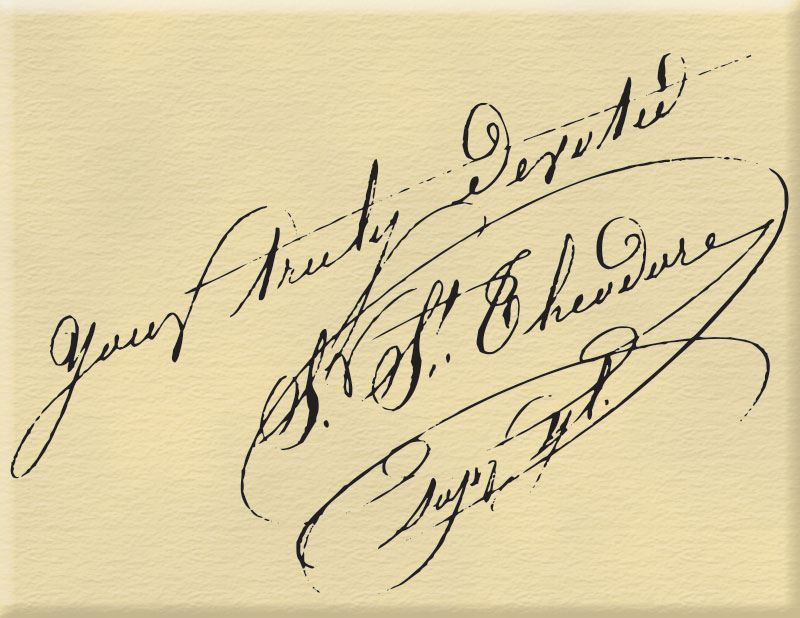 Yours truly Devoted
S. St. Theodore
Supr